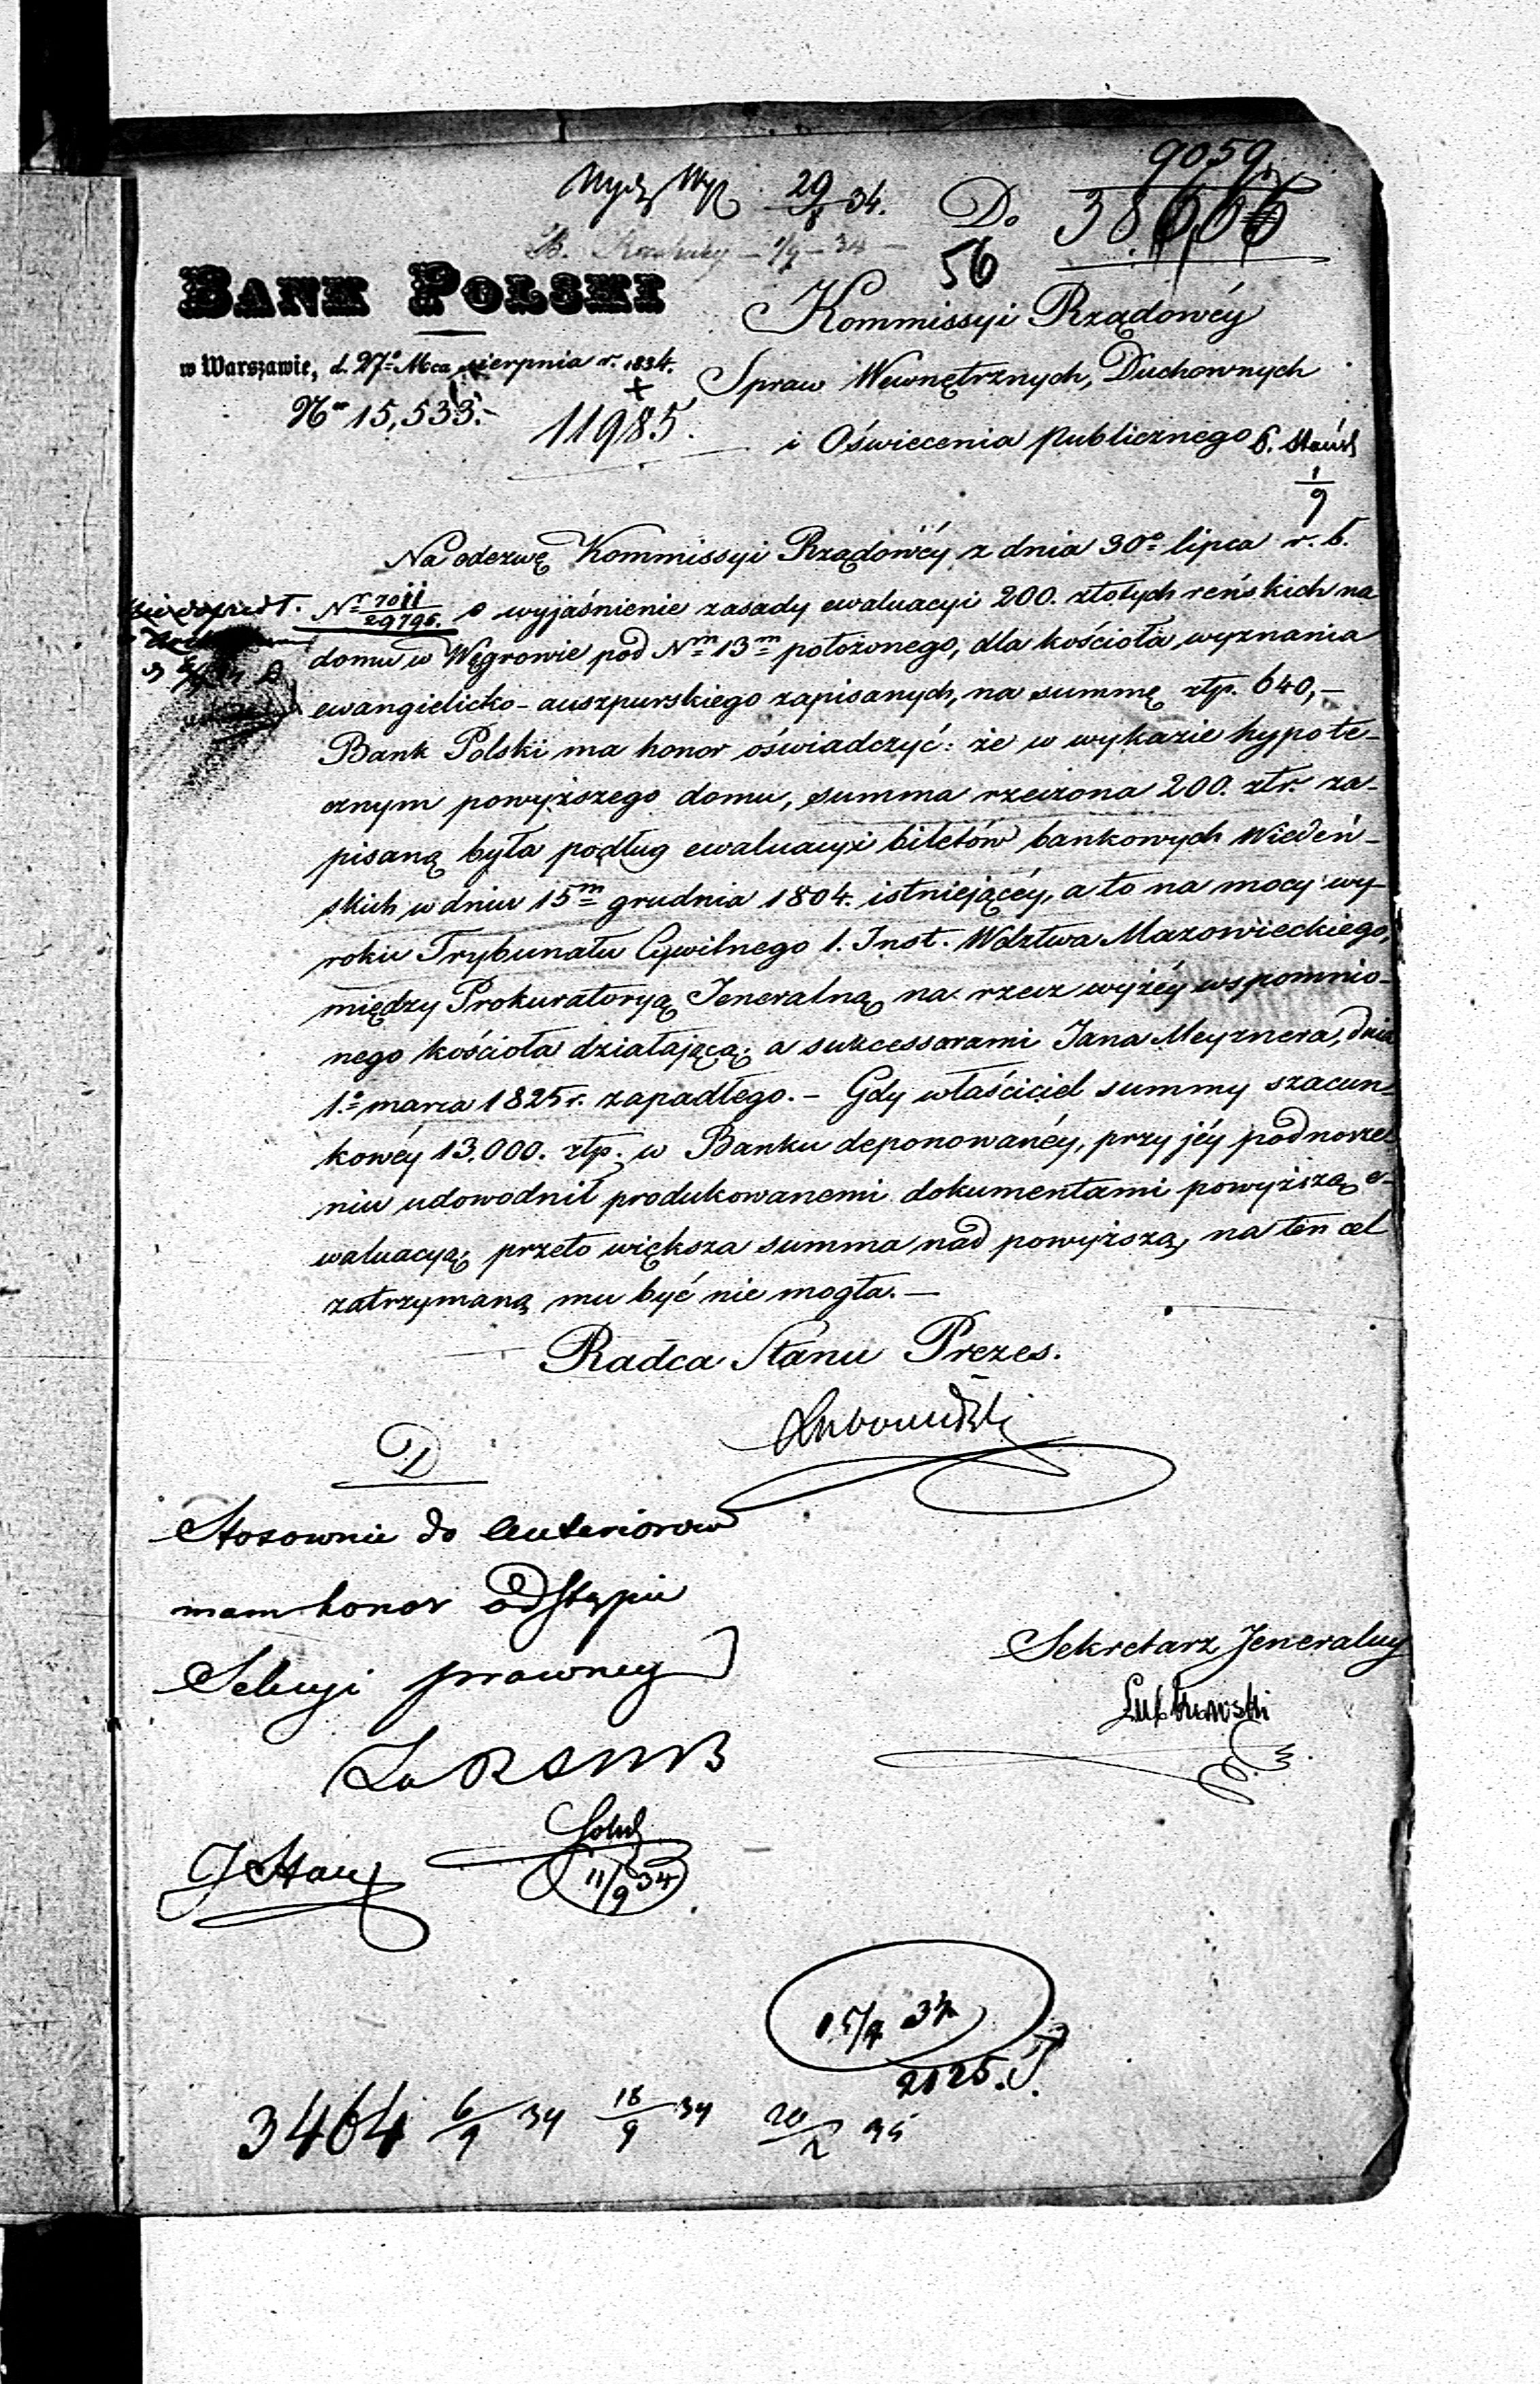 9059
29/8 34. Do 38666
56
BANK POLSKI
Kommissyi Rządowéy
w Warszawie, d. 27º Mca sierpnia r. 1834.
Spraw Wewnętrznych, Duchownych
Nr 15,533.
11985.
i Oświecenia publicznego
1/9
Na odezwę Kommissyi Rządowéy z dnia 30º lipca r. b.
Nr 7011/29796. o wyjaśnienie zasady ewaluacyi 200. złotych reńskich na
domu w Węgrowie pod Nm 13m położonego, dla kościoła wyznania
ewangielicko-auszpurskiego zapisanych, na summę złp. 640,—
Bank Polski ma honor oświadczyć: że w wykazie hypote-
cznym powyższego domu, summa rzeczona 200. złr. za-
pisaną była podług ewaluacyi biletów bankowych Wiedeń-
skich w dniu 15m grudnia 1804. istniejącéy, a to na mocy wy-
roku Trybunału Cywilnego 1. Inst. Wdztwa Mazowieckiego,
między Prokuratoryą Jeneralną na rzecz wyżéy wspomnio-
nego kościoła działającą; a sukcessorami Jana Meyznera, dnia
1º marca 1825 r. zapadłego. — Gdy właściciel summy szacun-
kowéy 13.000. złp. w Banku deponowanéy, przy jéy podnosze-
niu udowodnił produkowanemi dokumentami powyższą e-
waluacyą, przeto większa summa nad powyższą, na ten cel
zatrzymaną mu być nie mogła. —
Radca Stanu Prezes.
Lubowidzki
D
Stosownie do
mam honor odstąpić
Sekcyi prawney
Sekretarz Jeneralny
Lubkowski
11/9 34
15/9 34
2125.
3464 6/9 34 18/9 34 20/2 35